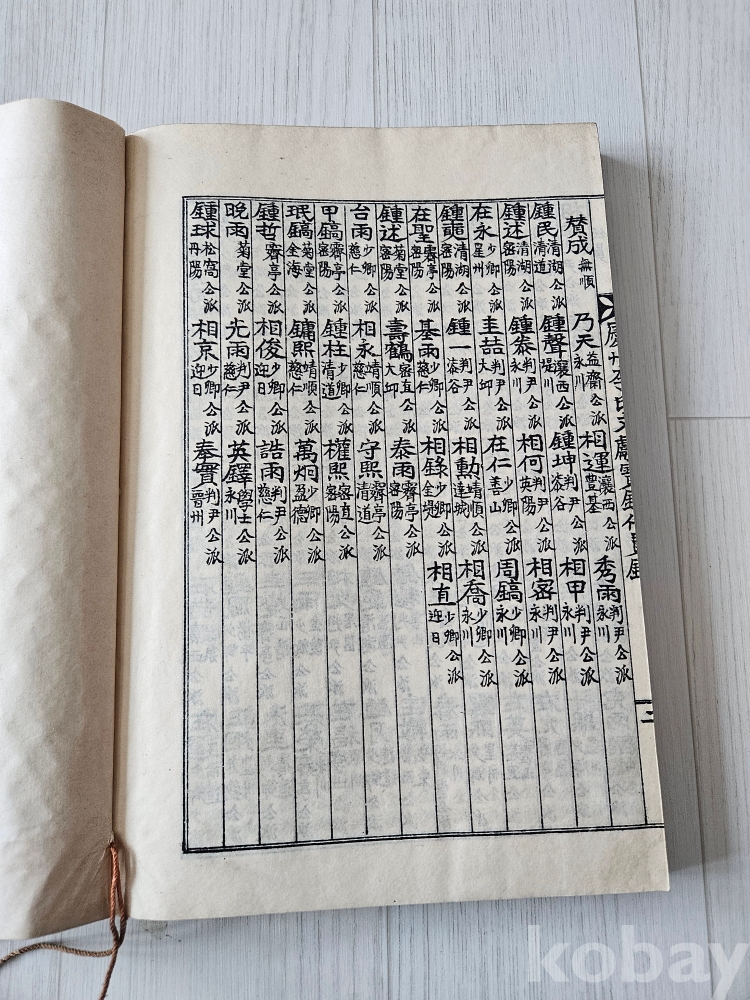 慶州李氏文獻寶鑑 二
賛成 無順 乃天 益齋公派 永川 相運 瀼西公派 豊基 秀雨 判尹公派 永川
鍾民 清湖公派 清道 鍾聲 瀼西公派 堤川 鍾坤 判尹公派 漆谷 相甲 判尹公派 永川
鍾述 清湖公派 密陽 鍾泰 判尹公派 永川 相何 判尹公派 英陽 相密 判尹公派 永川
在永 少卿公派 星州 圭喆 判尹公派 大邱 在仁 少卿公派 善山 周鎬 少卿公派 永川
鍾 清湖公派 密陽 鍾一 判尹公派 漆谷 相勳 靖順公派 達城 相喬 少卿公派 永川
在聖 霽亭公派 密陽 基雨 少卿公派 慈仁 相錄 少卿公派 金堤 相直 少卿公派 迎日
鍾述 菊堂公派 密陽 壽鶴 密直公派 大邱 泰雨 霽亭公派 密陽
台雨 少卿公派 慈仁 相永 靖順公派 慈仁 守熙 霽亭公派 清道
甲鎬 霽亭公派 密陽 鍾柱 少卿公派 清道 權熙 密直公派 密陽
珉鎬 菊堂公派 金海 鏞熙 靖順公派 慈仁 萬炯 少卿公派 盈德
鍾哲 霽亭公派 密陽 相俊 少卿公派 迎日 誥雨 判尹公派 慈仁
晩雨 菊堂公派 慈仁 光雨 判尹公派 慈仁 英鐸 學士公派 永川
鍾球 松窩公派 丹陽 相京 少卿公派 迎日 奉實 判尹公派 晋州
kobay